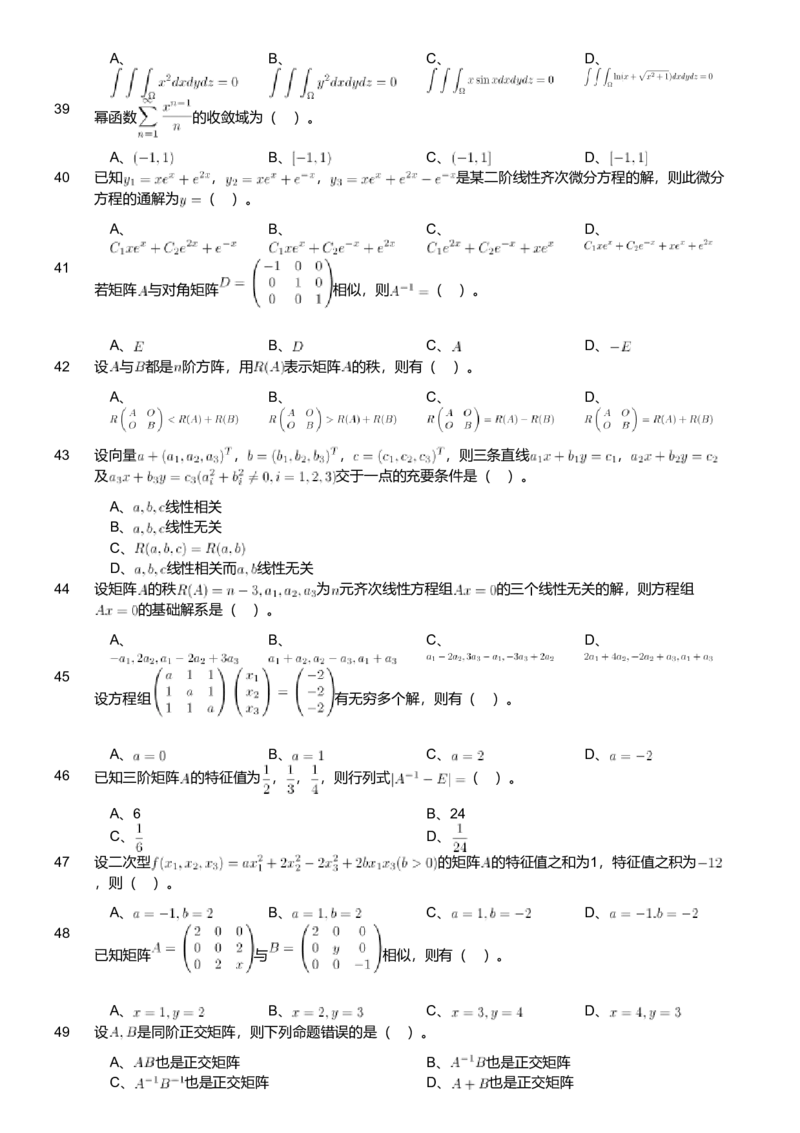 A、 B、 C、 D、
∫∫∫_Ω x²dxdydz = 0 ∫∫∫_Ω y²dxdydz = 0 ∫∫∫_Ω x sin xdxdydz = 0 ∫∫∫_Ω ln(x + √(x²+1))dxdydz = 0
39
幂函数 ∑_{n=1}^{∞} x^{n-1}/n 的收敛域为（ ）。
A、(−1, 1) B、[−1, 1) C、(−1, 1] D、[−1, 1]
40 已知y₁ = xeˣ + e²ˣ，y₂ = xeˣ + e⁻ˣ，y₃ = xeˣ + e²ˣ − e⁻ˣ是某二阶线性齐次微分方程的解，则此微分
方程的通解为y =（ ）。
A、 B、 C、 D、
C₁xeˣ + C₂e²ˣ + e⁻ˣ C₁xeˣ + C₂e⁻ˣ + e²ˣ C₁e²ˣ + C₂e⁻ˣ + xeˣ C₁xeˣ + C₂e⁻ˣ + xeˣ + e²ˣ
41
若矩阵A与对角矩阵 D = (−1 0 0; 0 1 0; 0 0 1) 相似，则A⁻¹ =（ ）。
A、E B、D C、A D、−E
42 设A与B都是n阶方阵，用R(A)表示矩阵A的秩，则有（ ）。
A、 B、 C、 D、
R(A O; O B) < R(A) + R(B) R(A O; O B) > R(A) + R(B) R(A O; O B) = R(A) − R(B) R(A O; O B) = R(A) + R(B)
43 设向量a + (a₁, a₂, a₃)ᵀ，b = (b₁, b₂, b₃)ᵀ，c = (c₁, c₂, c₃)ᵀ，则三条直线a₁x + b₁y = c₁，a₂x + b₂y = c₂
及a₃x + b₃y = c₃(aᵢ² + bᵢ² ≠ 0, i = 1, 2, 3)交于一点的充要条件是（ ）。
A、a, b, c线性相关
B、a, b, c线性无关
C、R(a, b, c) = R(a, b)
D、a, b, c线性相关而a, b线性无关
44 设矩阵A的秩R(A) = n − 3, a₁, a₂, a₃为n元齐次线性方程组Ax = 0的三个线性无关的解，则方程组
Ax = 0的基础解系是（ ）。
A、 B、 C、 D、
−a₁, 2a₂, a₁ − 2a₂ + 3a₃ a₁ + a₂, a₂ − a₃, a₁ + a₃ a₁ − 2a₂, 3a₃ − a₁, −3a₃ + 2a₂ 2a₁ + 4a₂, −2a₂ + a₃, a₁ + a₃
45
设方程组 (a 1 1; 1 a 1; 1 1 a)(x₁; x₂; x₃) = (−2; −2; −2) 有无穷多个解，则有（ ）。
A、a = 0 B、a = 1 C、a = 2 D、a = −2
46 已知三阶矩阵A的特征值为1/2，1/3，1/4，则行列式|A⁻¹ − E| =（ ）。
A、6 B、24
C、1/6 D、1/24
47 设二次型f(x₁, x₂, x₃) = ax₁² + 2x₂² − 2x₃² + 2bx₁x₃(b > 0)的矩阵A的特征值之和为1，特征值之积为−12
，则（ ）。
A、a = −1, b = 2 B、a = 1, b = 2 C、a = 1, b = −2 D、a = −1.b = −2
48
已知矩阵 A = (2 0 0; 0 0 2; 0 2 x) 与 B = (2 0 0; 0 y 0; 0 0 −1) 相似，则有（ ）。
A、x = 1, y = 2 B、x = 2, y = 3 C、x = 3, y = 4 D、x = 4, y = 3
49 设A, B是同阶正交矩阵，则下列命题错误的是（ ）。
A、AB也是正交矩阵 B、A⁻¹B也是正交矩阵
C、A⁻¹B⁻¹也是正交矩阵 D、A + B也是正交矩阵